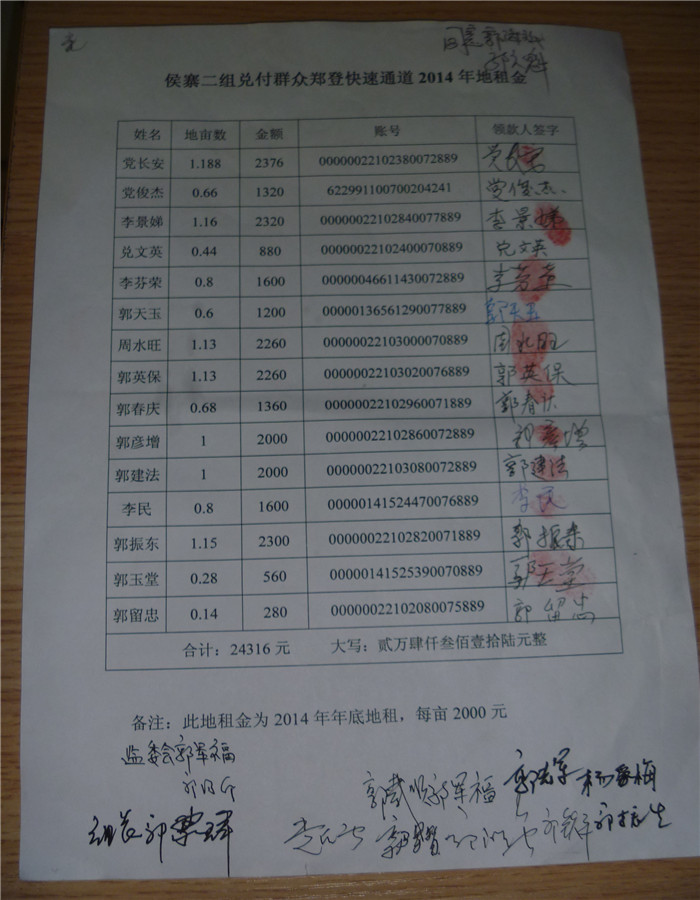 侯寨二组兑付群众郑登快速通道 2014 年地租金
姓名 地亩数 金额 账号 领款人签字
党长安 1.188 2376 00000022102380072889 党长安
党俊杰 0.66 1320 622991100700204241 党俊杰
李景娣 1.16 2320 00000022102840077889 李景娣
兑文英 0.44 880 00000022102400070889 兑文英
李芬荣 0.8 1600 00000046611430072889 李芬荣
郭天玉 0.6 1200 00000136561290077889 郭天玉
周水旺 1.13 2260 00000022103000070889 周水旺
郭英保 1.13 2260 00000022103020076889 郭英保
郭春庆 0.68 1360 00000022102960071889 郭春庆
郭彦增 1 2000 00000022102860072889 郭彦增
郭建法 1 2000 00000022103080072889 郭建法
李民 0.8 1600 00000141524470076889 李民
郭振东 1.15 2300 00000022102820071889 郭振东
郭玉堂 0.28 560 00000141525390070889 郭玉堂
郭留忠 0.14 280 00000022102080075889 郭留忠
合计：24316 元 大写：贰万肆仟叁佰壹拾陆元整
备注：此地租金为 2014 年年底地租，每亩 2000 元
监委会郭军福
郭军福
组长